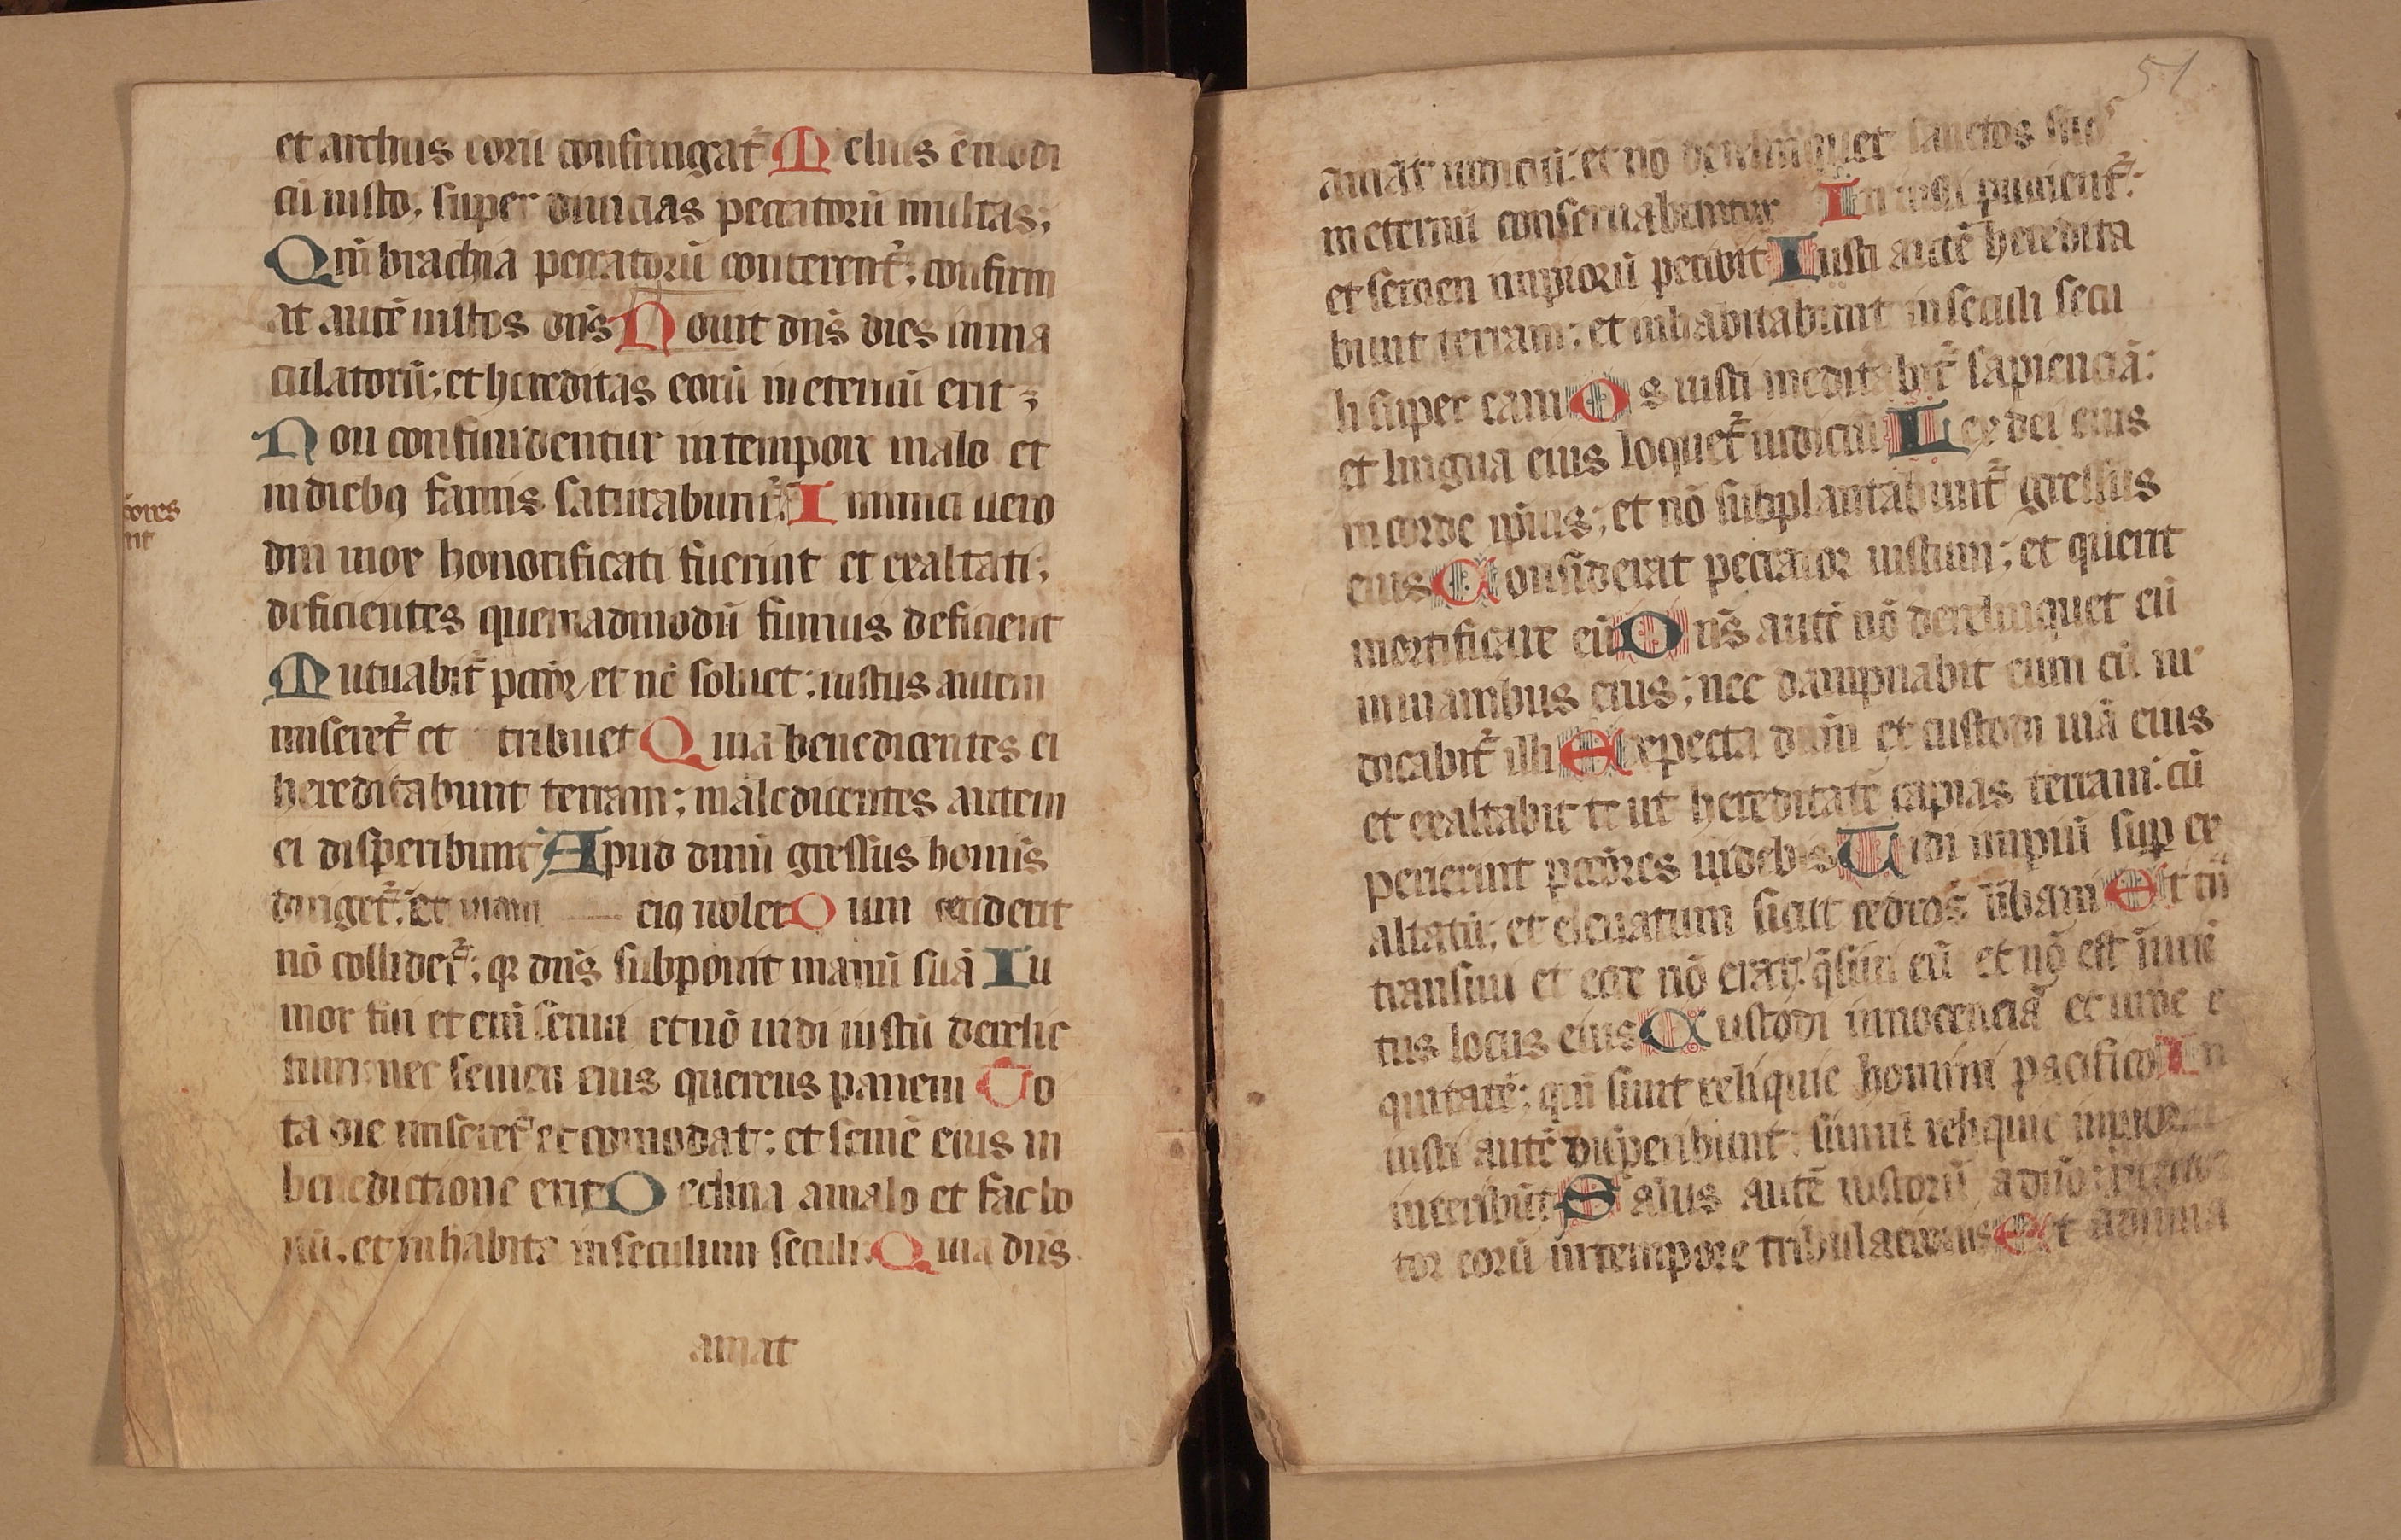 et archus eorū confringat᷑ Melius ē modi
cū iusto, super diuicias peccatorū multas;
Qm̄ brachia peccatorū conterent᷑; confirm
at autē iustos dn̄s Nouit dn̄s dies inma
culatorū; et hereditas eorū in eternū erit;
Non confundentur in tempore malo et
in diebꝯ famis saturabunt᷑ Inimici uero
dn̄i mox honorificati fuerint et exaltati;
deficientes quemadmodū fumus deficient
Mutuabit᷑ pcc̄or et nō soluet; iustus autem
miseret᷑ et tribuet Quia benedicentes ei
hereditabunt terram; maledicentes autem
ei disperibunt Apud dnm̄ gressus hominis
diriget᷑; et uiam eiꝯ uolet Cum ceciderit
nō collidet᷑; qꝛ dn̄s subponit manū suā Iu
nior fui et eni᷑ senui et nō uidi iustū derelic
tum nec semen eius querens panem To
ta die miseret᷑ et comodat; et semē eius in
benedictione erit Declina a malo et fac bo
nū, et inhabita in seculum seculi Quia dn̄s
amat
cores
nt
51
amat iudiciū; et nō derelinquet sanctos suos
in eternū conseruabuntur Iniusti punient᷑;
et semen impiorū peribit Iusti autē heredita
bunt terram; et inhabitabunt in seculū secu
li super eam Os iusti meditabit᷑ sapienciā;
et lingua eius loquet᷑ iudiciū Lex dei eius
in corde ipius; et nō subplantabunt᷑ gressus
eius Considerat peccator iustum; et querit
mortificare eū Dn̄s autē nō derelinquet eū
in manibus eius; nec dampnabit eum cū iu
dicabit᷑ illi Exspecta dnm̄ et custodi uiā eius
et exaltabit te ut hereditatē capias terram; cū
perierint pcc̄ores uidebis Uidi impiū sup ex
altatū; et eleuatum sicut cedros libani Et tn̄
transiui et ecce nō erat; q̄siui eū et nō est inuē
tus locus eius Custodi innocenciā et uide e
quitatē; qm̄ sunt reliquie homini pacifico In
iusti autē disperibunt; simul reliquie impior
interibūt Salus autē iustorū a dn̄o; protec
tor eorū in tempore tribulacionis Et adiuua